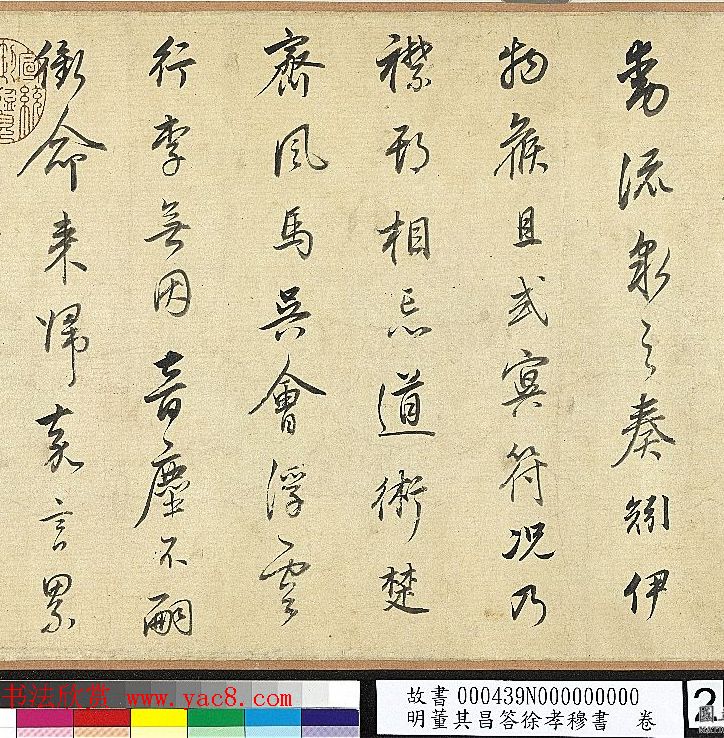 動流泉之奏矧伊
物候且或冥符況乃
襟期相忘道術楚
齊風馬吳會浮雲
行李無因音塵不嗣
銜命來歸嘉言累
书法欣赏 www.yac8.com
故書 000439N000000000
明董其昌答徐孝穆書 卷
2